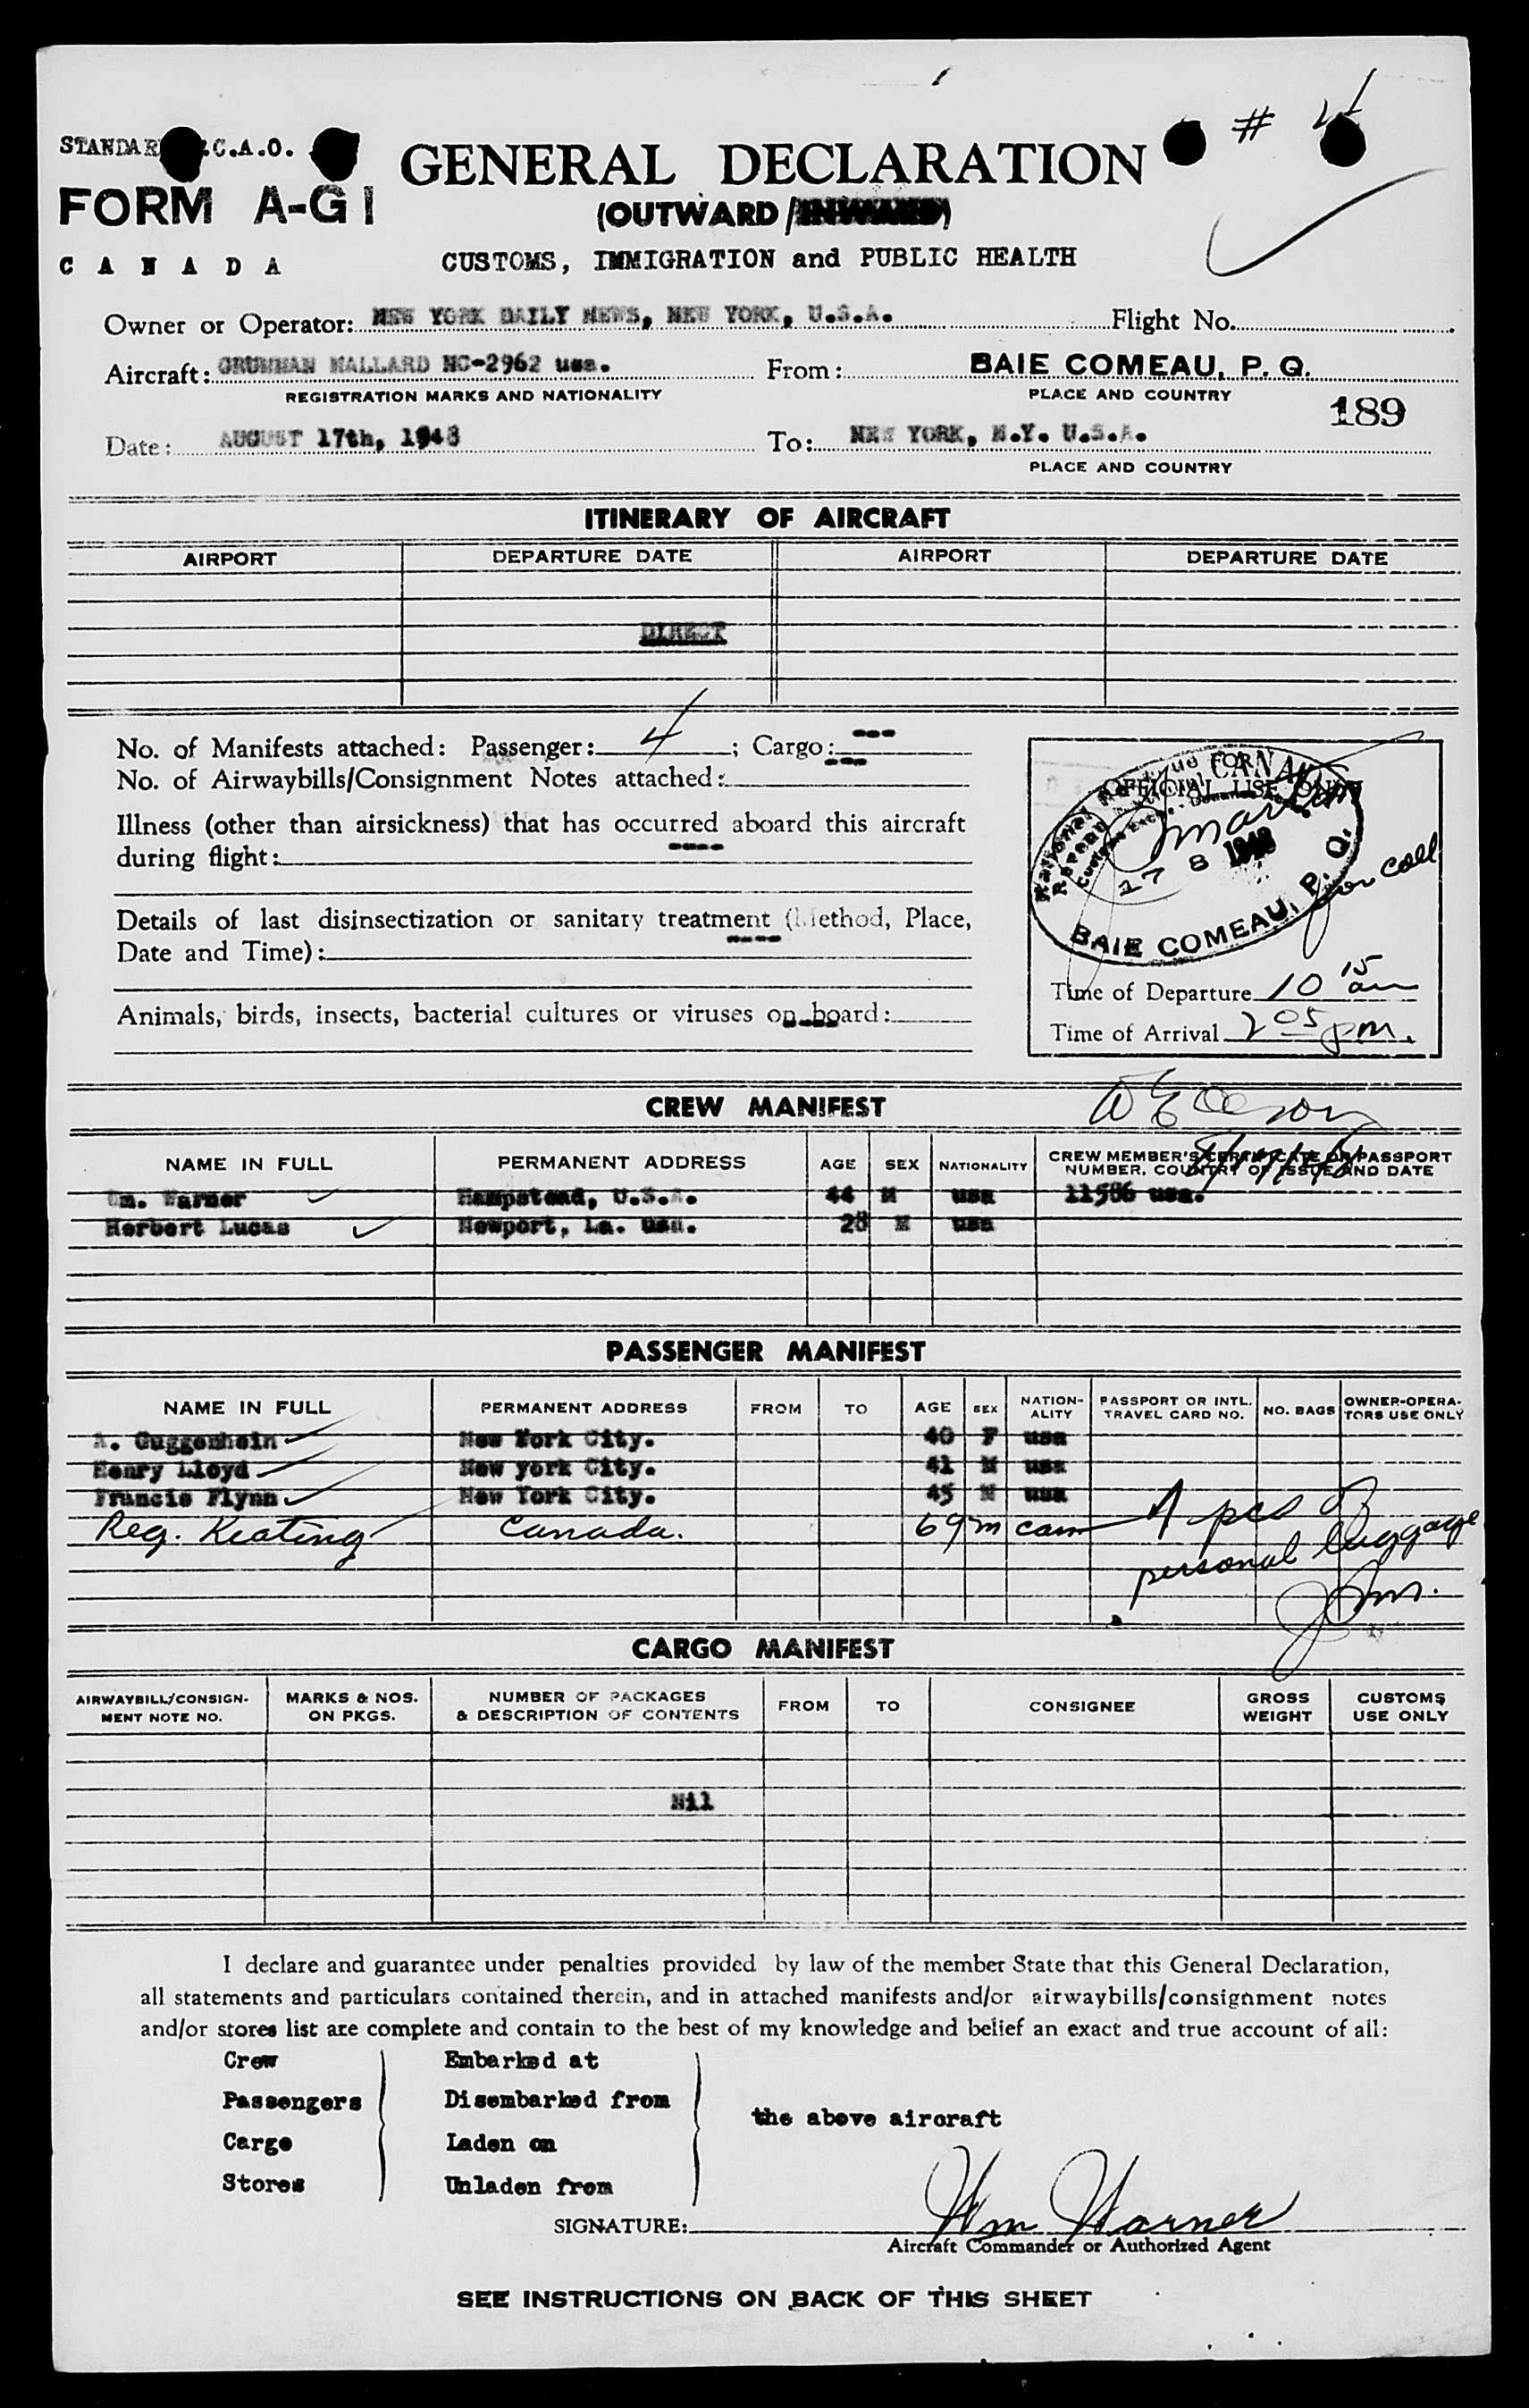 # 21
STANDARD I.C.A.O.
FORM A-G1
CANADA
GENERAL DECLARATION
(OUTWARD/INWARD)
CUSTOMS, IMMIGRATION and PUBLIC HEALTH
Owner or Operator: NEW YORK DAILY NEWS, NEW YORK, U.S.A. Flight No.
Aircraft: GRUMMAN MALLARD NC-2962 usa. From: BAIE COMEAU, P. Q.
REGISTRATION MARKS AND NATIONALITY PLACE AND COUNTRY
189
Date: AUGUST 17th, 1948 To: NEW YORK, N.Y. U.S.A.
PLACE AND COUNTRY
ITINERARY OF AIRCRAFT
AIRPORT DEPARTURE DATE AIRPORT DEPARTURE DATE
DIRECT
No. of Manifests attached: Passenger: 4 ; Cargo: ---
No. of Airwaybills/Consignment Notes attached: ---
Illness (other than airsickness) that has occurred aboard this aircraft
during flight: ----
Details of last disinsectization or sanitary treatment (Method, Place,
Date and Time): ----
Animals, birds, insects, bacterial cultures or viruses on board:
FOR
OFFICIAL USE ONLY
CANADA
National Revenue
Customs Excise
17 8 1948
BAIE COMEAU, P. Q.
for coll
Time of Departure 10 15 am
Time of Arrival 2 05 pm.
CREW MANIFEST
NAME IN FULL PERMANENT ADDRESS AGE SEX NATIONALITY CREW MEMBER'S CERTIFICATE OR PASSPORT
NUMBER, COUNTRY OF ISSUE AND DATE
Wm. Warner Hampstead, U.S.A. 44 M usa 11586 usa.
Herbert Lucas Newport, La. usa. 28 M usa
PASSENGER MANIFEST
NAME IN FULL PERMANENT ADDRESS FROM TO AGE SEX NATION-
ALITY PASSPORT OR INTL.
TRAVEL CARD NO. NO. BAGS OWNER-OPERA-
TORS USE ONLY
A. Guggenhein New York City. 40 F usa
Henry Lloyd New york City. 41 M usa
Francis Flynn New York City. 45 M usa
Reg. Keating Canada. 69 m can
pcs of
personal luggage
CARGO MANIFEST
AIRWAYBILL/CONSIGN-
MENT NOTE NO. MARKS & NOS.
ON PKGS. NUMBER OF PACKAGES
& DESCRIPTION OF CONTENTS FROM TO CONSIGNEE GROSS
WEIGHT CUSTOMS
USE ONLY
Nil
I declare and guarantee under penalties provided by law of the member State that this General Declaration,
all statements and particulars contained therein, and in attached manifests and/or airwaybills/consignment notes
and/or stores list are complete and contain to the best of my knowledge and belief an exact and true account of all:
Crew Embarked at
Passengers Disembarked from
the above aircraft
Cargo Laden on
Stores Unladen from
SIGNATURE: Wm Warner
Aircraft Commander or Authorized Agent
SEE INSTRUCTIONS ON BACK OF THIS SHEET